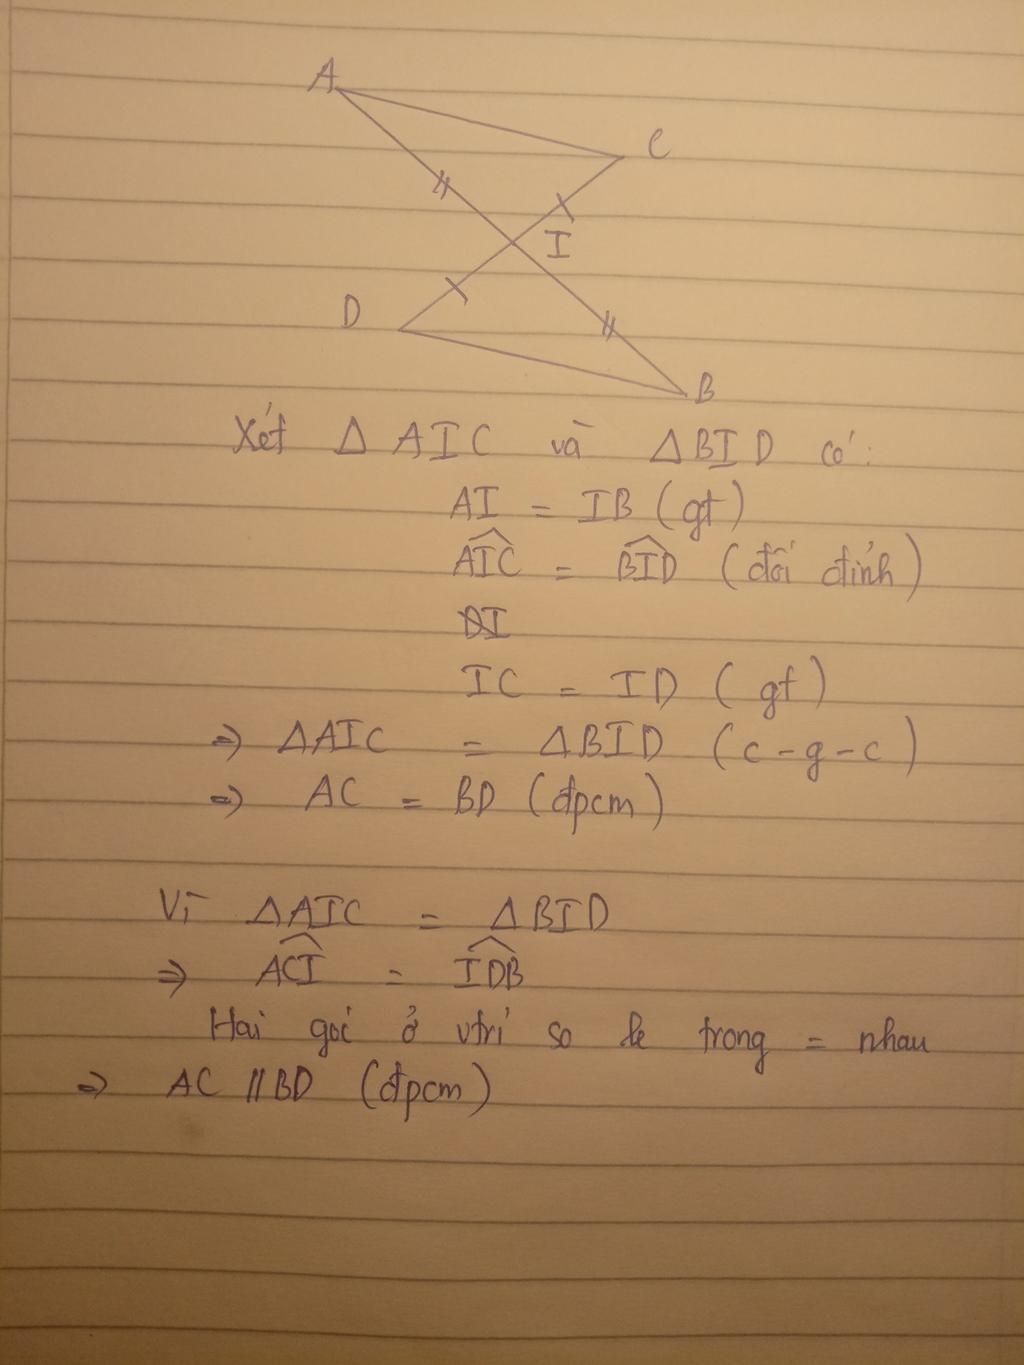 A
C
I
D
B
Xét Δ AIC và ΔBID có:
AI = IB (gt)
AIC = BID (đối đỉnh)
IC = ID (gt)
=> ΔAIC = ΔBID (c-g-c)
=> AC = BD (đpcm)
Vì ΔAIC = ΔBID
=> ACI = IDB
Hai goc ở vtrí so le trong = nhau
=> AC // BD (đpcm)